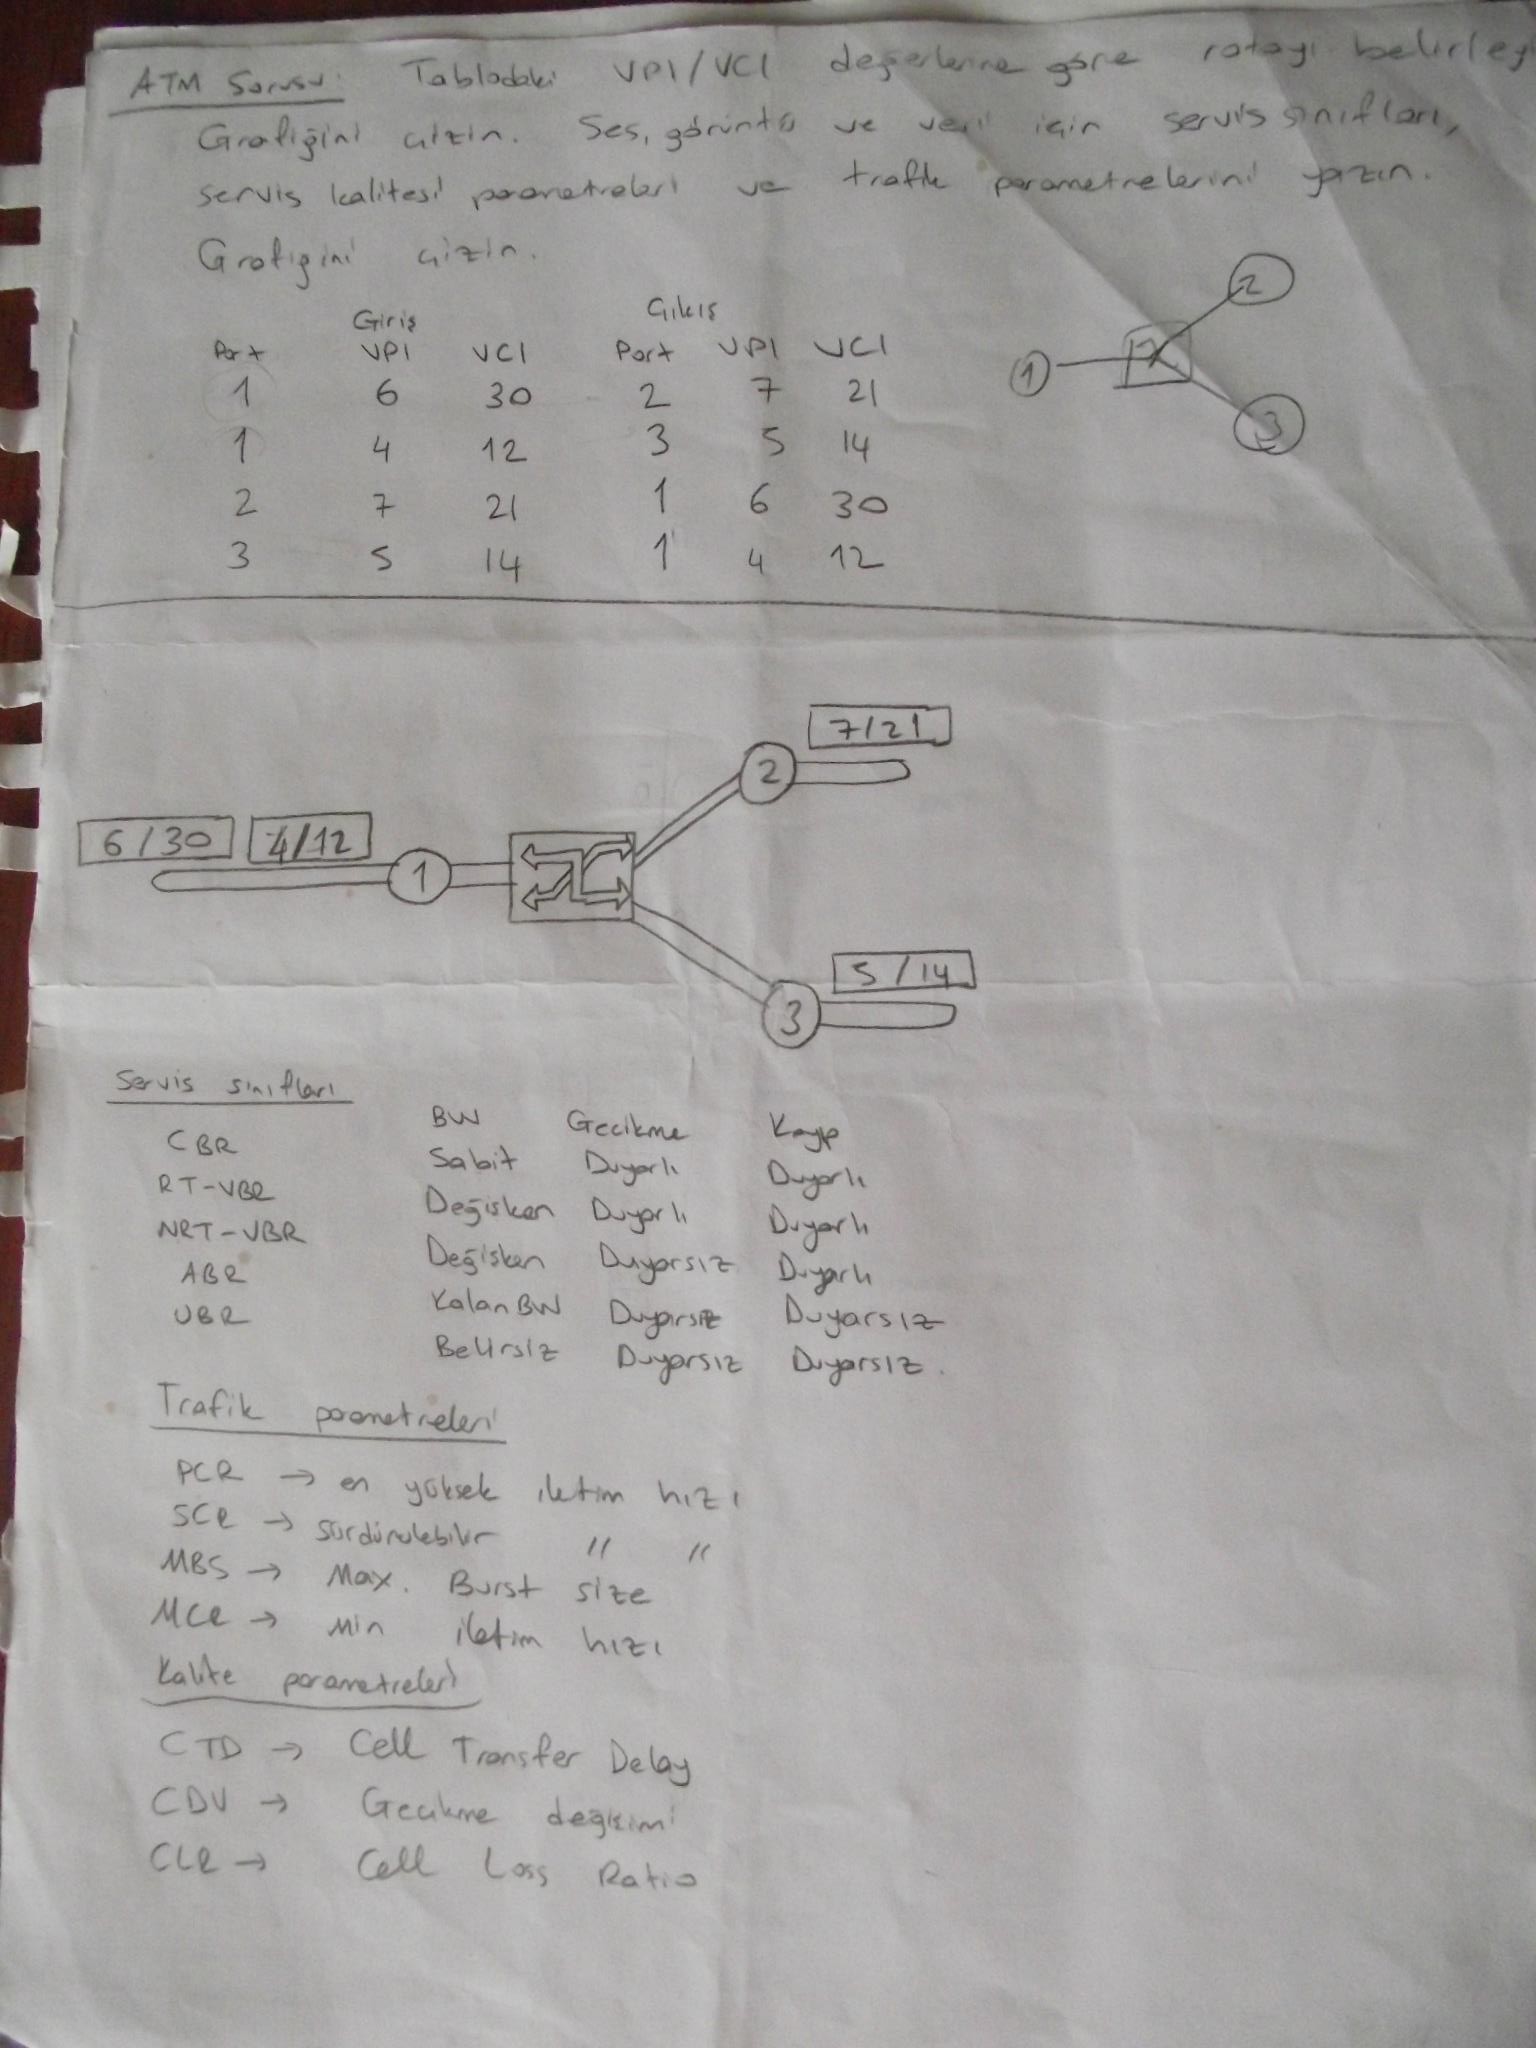 ATM Sorusu: Tablodaki VPI/VCI değerlerine göre rotayı belirley
Grafiğini çizin. Ses, görüntü ve veri için servis sınıfları,
servis kalitesi parametreleri ve trafik parametrelerini yazın.
Grafiğini çizin.
Giriş Çıkış
Port VPI VCI Port VPI VCI
1 6 30 2 7 21
1 4 12 3 5 14
2 7 21 1 6 30
3 5 14 1 4 12
1
2
3
7/21
2
6/30 4/12
1
5/14
3
Servis sınıfları
BW Gecikme Kayıp
CBR Sabit Duyarlı Duyarlı
RT-VBR Değişken Duyarlı Duyarlı
NRT-VBR Değişken Duyarsız Duyarlı
ABR Kalan BW Duyarsız Duyarsız
UBR Belirsiz Duyarsız Duyarsız.
Trafik parametreleri
PCR → en yüksek iletim hızı
SCR → sürdürülebilir " "
MBS → Max. Burst size
MCR → Min iletim hızı
Kalite parametreleri
CTD → Cell Transfer Delay
CDV → Gecikme değişimi
CLR → Cell Loss Ratio